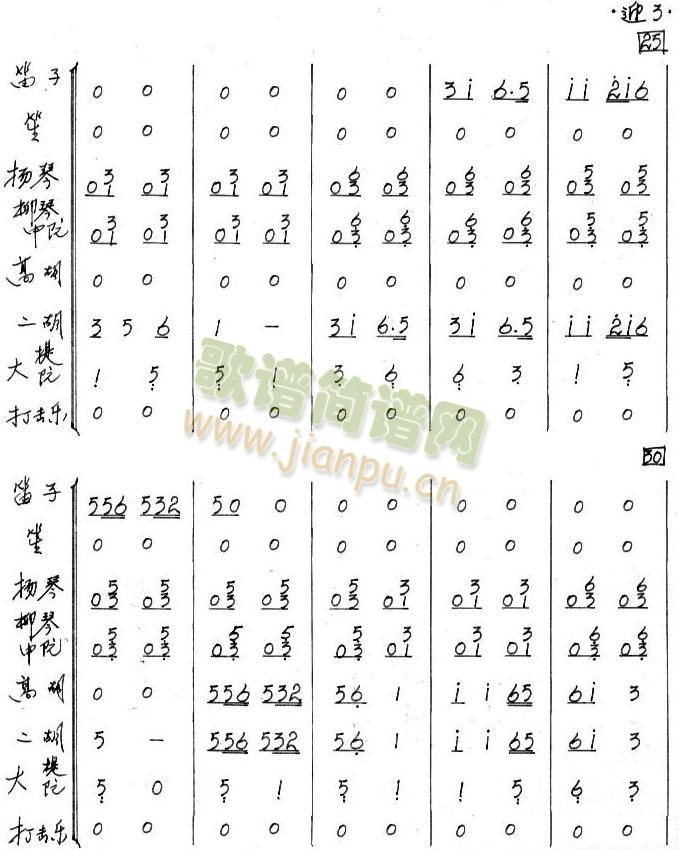 ·迎3·
25
笛子 0 0 | 0 0 | 0 0 | 3 i 6.5 | i i 2 i 6
笙 0 0 | 0 0 | 0 0 | 0 0 | 0 0
扬琴 0 3 1 0 3 1 | 0 3 1 0 3 1 | 0 6 3 0 6 3 | 0 6 3 0 6 3 | 0 5 3 0 5 3
柳琴
中阮 0 3 1 0 3 1 | 0 3 1 0 3 1 | 0 6 3 0 6 3 | 0 6 3 0 6 3 | 0 5 3 0 5 3
高胡 0 0 | 0 0 | 0 0 | 0 0 | 0 0
二胡 3 5 6 | 1 - | 3 i 6.5 | 3 i 6.5 | i i 2 i 6
大提
阮 1 5 | 5 1 | 3 6 | 6 3 | 1 5
打击乐 0 0 | 0 0 | 0 0 | 0 0 | 0 0
歌谱简谱网
www.jianpu.cn
30
笛子 5 5 6 5 3 2 | 5 0 0 | 0 0 | 0 0 | 0 0
笙 0 0 | 0 0 | 0 0 | 0 0 | 0 0
扬琴 0 5 3 0 5 3 | 0 5 3 0 5 3 | 0 5 3 0 3 1 | 0 3 1 0 3 1 | 0 6 3 0 6 3
柳琴
中阮 0 5 3 0 5 3 | 0 5 3 0 5 3 | 0 5 3 0 3 1 | 0 3 1 0 3 1 | 0 6 3 0 6 3
高胡 0 0 | 5 5 6 5 3 2 | 5 6 1 | i i 6 5 | 6 i 3
二胡 5 - | 5 5 6 5 3 2 | 5 6 1 | i i 6 5 | 6 i 3
大提
阮 5 0 | 5 1 | 5 1 | 1 5 | 6 3
打击乐 0 0 | 0 0 | 0 0 | 0 0 | 0 0